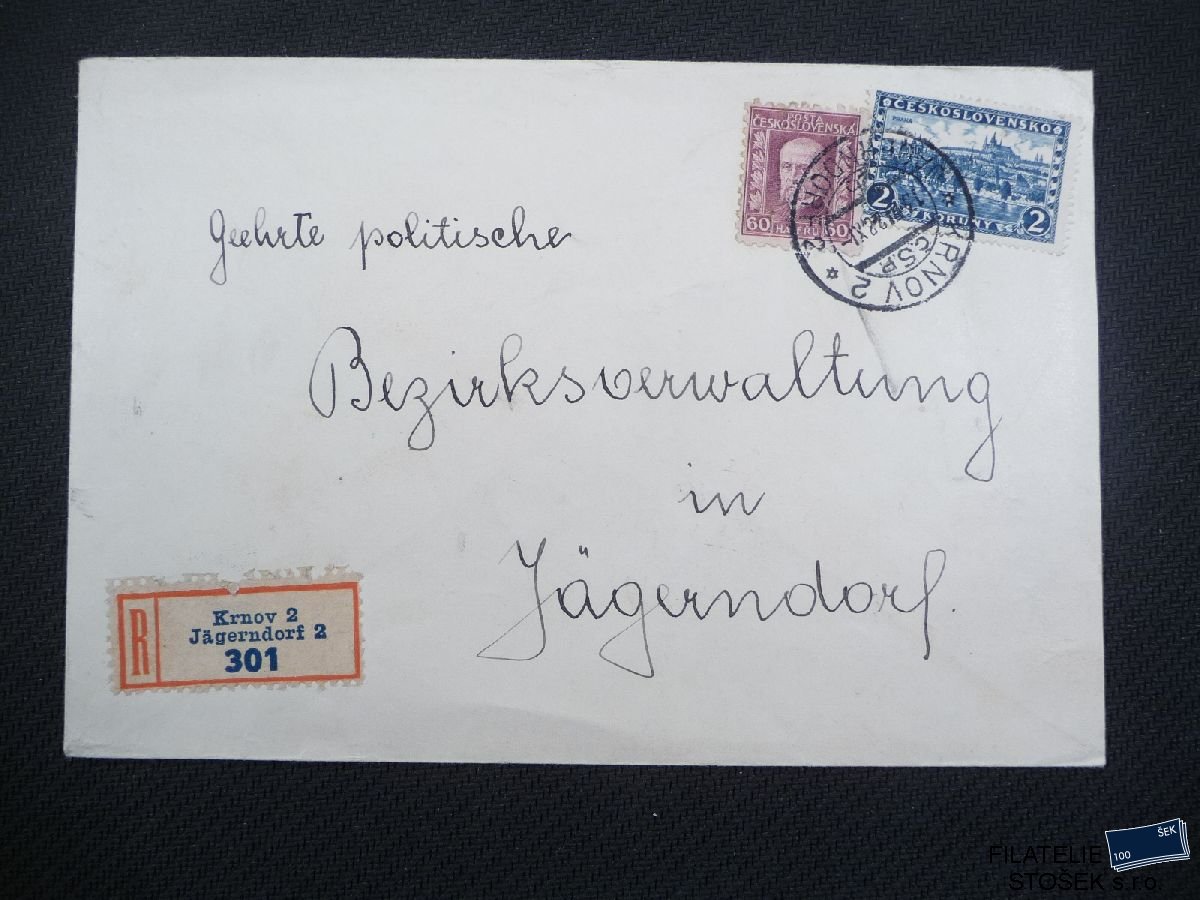 POSTA
ČESKOSLOVENSKÁ
60 HALÉŘŮ 60
ČESKOSLOVENSKO
PRAHA
2 KORUNY 2
KRNOV 2
ČSR
Geehrte politische
Bezirksverwaltung
in
Jägerndorf.
R
Krnov 2
Jägerndorf 2
301
ŠEK
100
FILATELIE
STOŠEK s.r.o.